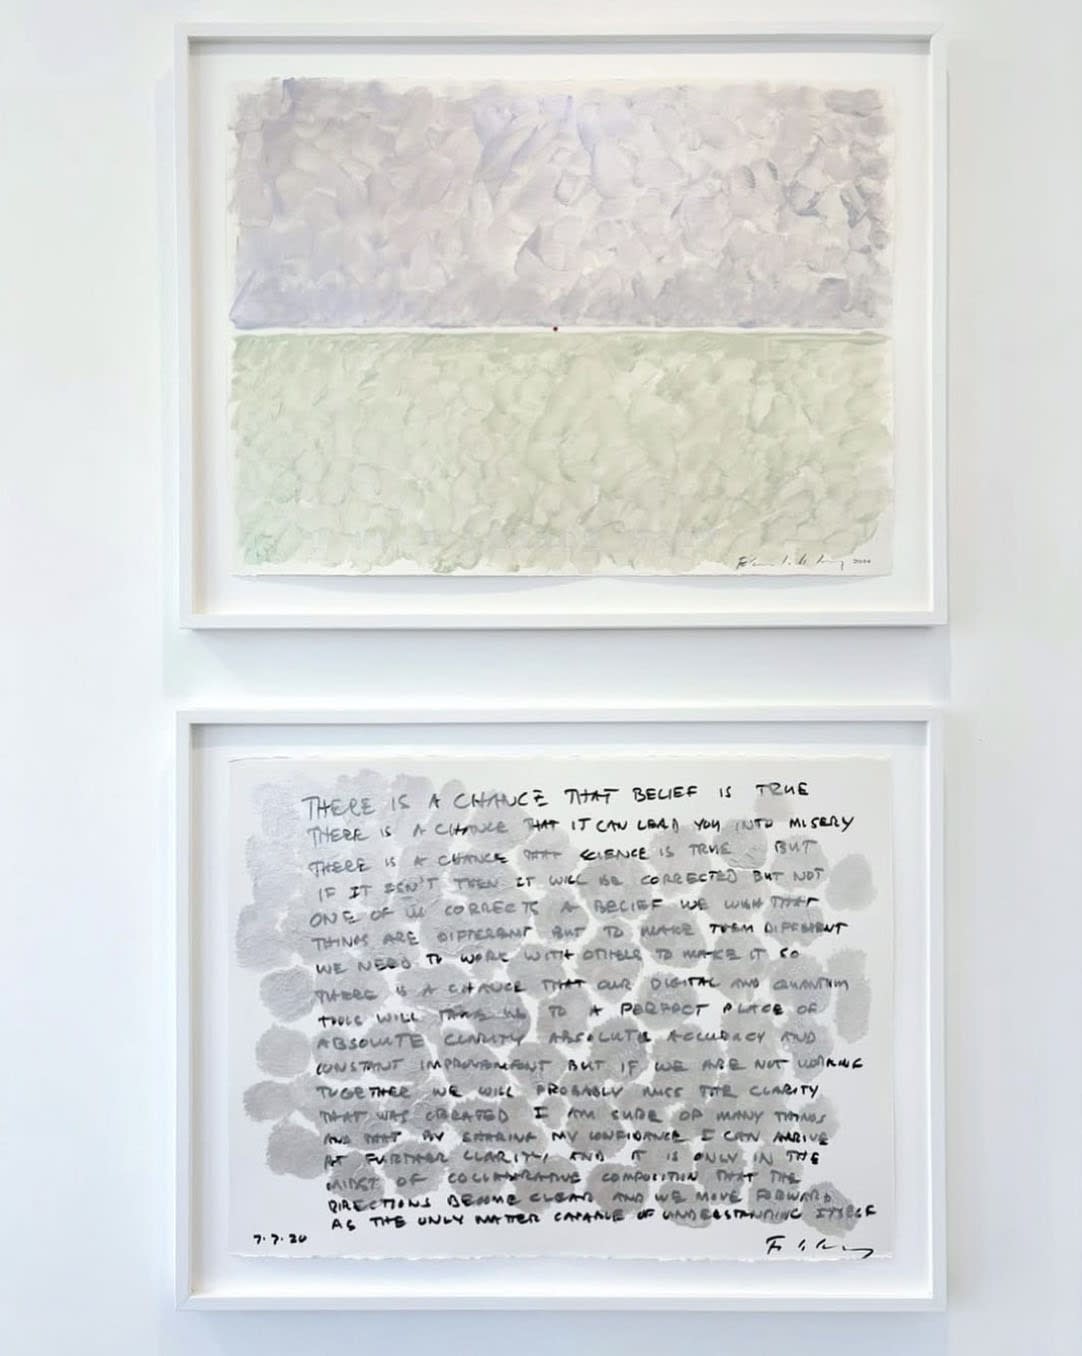 2020
THERE IS A CHANCE THAT BELIEF IS TRUE
THERE IS A CHANCE THAT IT CAN LEAD YOU INTO MISERY
THERE IS A CHANCE THAT SCIENCE IS TRUE BUT
IF IT ISN'T THEN IT WILL BE CORRECTED BUT NOT
ONE OF US CORRECTS A BELIEF WE WISH THAT
THINGS ARE DIFFERENT BUT TO MAKE THEM DIFFERENT
WE NEED TO WORK WITH OTHERS TO MAKE IT SO
THERE IS A CHANCE THAT OUR DIGITAL AND QUANTUM
TOOLS WILL TAKE US TO A PERFECT PLACE OF
ABSOLUTE CLARITY ABSOLUTE ACCURACY AND
CONSTANT IMPROVEMENT BUT IF WE ARE NOT WORKING
TOGETHER WE WILL PROBABLY MISS THE CLARITY
THAT WAS CREATED I AM SURE OF MANY THINGS
AND THAT BY SHARING MY CONFIDANCE I CAN ARRIVE
AT FURTHER CLARITY, AND IT IS ONLY IN THE
MIDST OF COLLABORATIVE COMPOSITION THAT THE
DIRECTIONS BECOME CLEAR AND WE MOVE FORWARD
AS THE ONLY MATTER CAPABLE OF UNDERSTANDING ITSELF
7.7.20